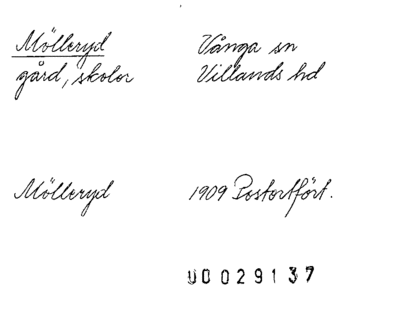 Mölleryd Vånga sn
gård, skolor Villands hd
Mölleryd 1909 Postortfört.
00029137